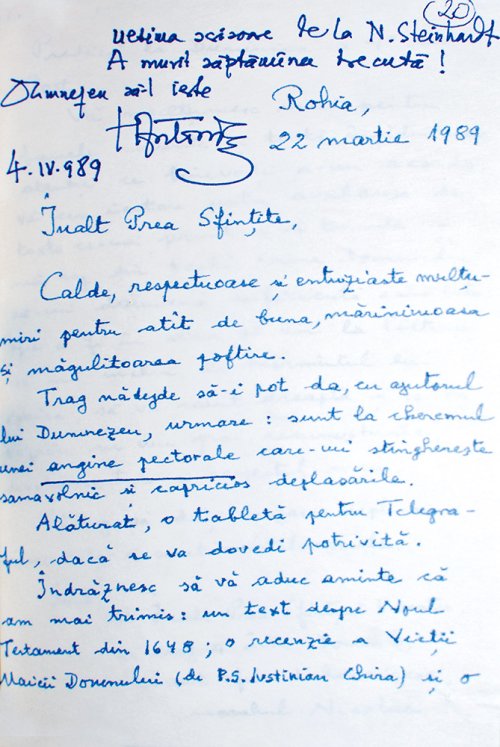 (20)
Ultima scrisoare de la N. Steinhardt
A murit săptămîna trecută!
Dumnezeu să-l ierte
Rohia,
22 martie 1989
4.IV.989
Înalt Prea Sfințite,
Calde, respectuoase și entuziaste mulțu-
miri pentru atît de buna, mărinimoasa
și măgulitoarea poftire.
Trag nădejde să-i pot da, cu ajutorul
lui Dumnezeu, urmare: sunt la cheremul
unei angine pectorale care-mi stinghereşte
samavolnic și capricios deplasările.
Alăturat, o tabletă pentru Telegra-
ful, dacă se va dovedi potrivită.
Îndrăznesc să vă aduc aminte că
am mai trimis: un text despre Noul
Testament din 1648; o recenzie a Vieții
Maicii Domnului (de P.S. Iustinian Chira) și o